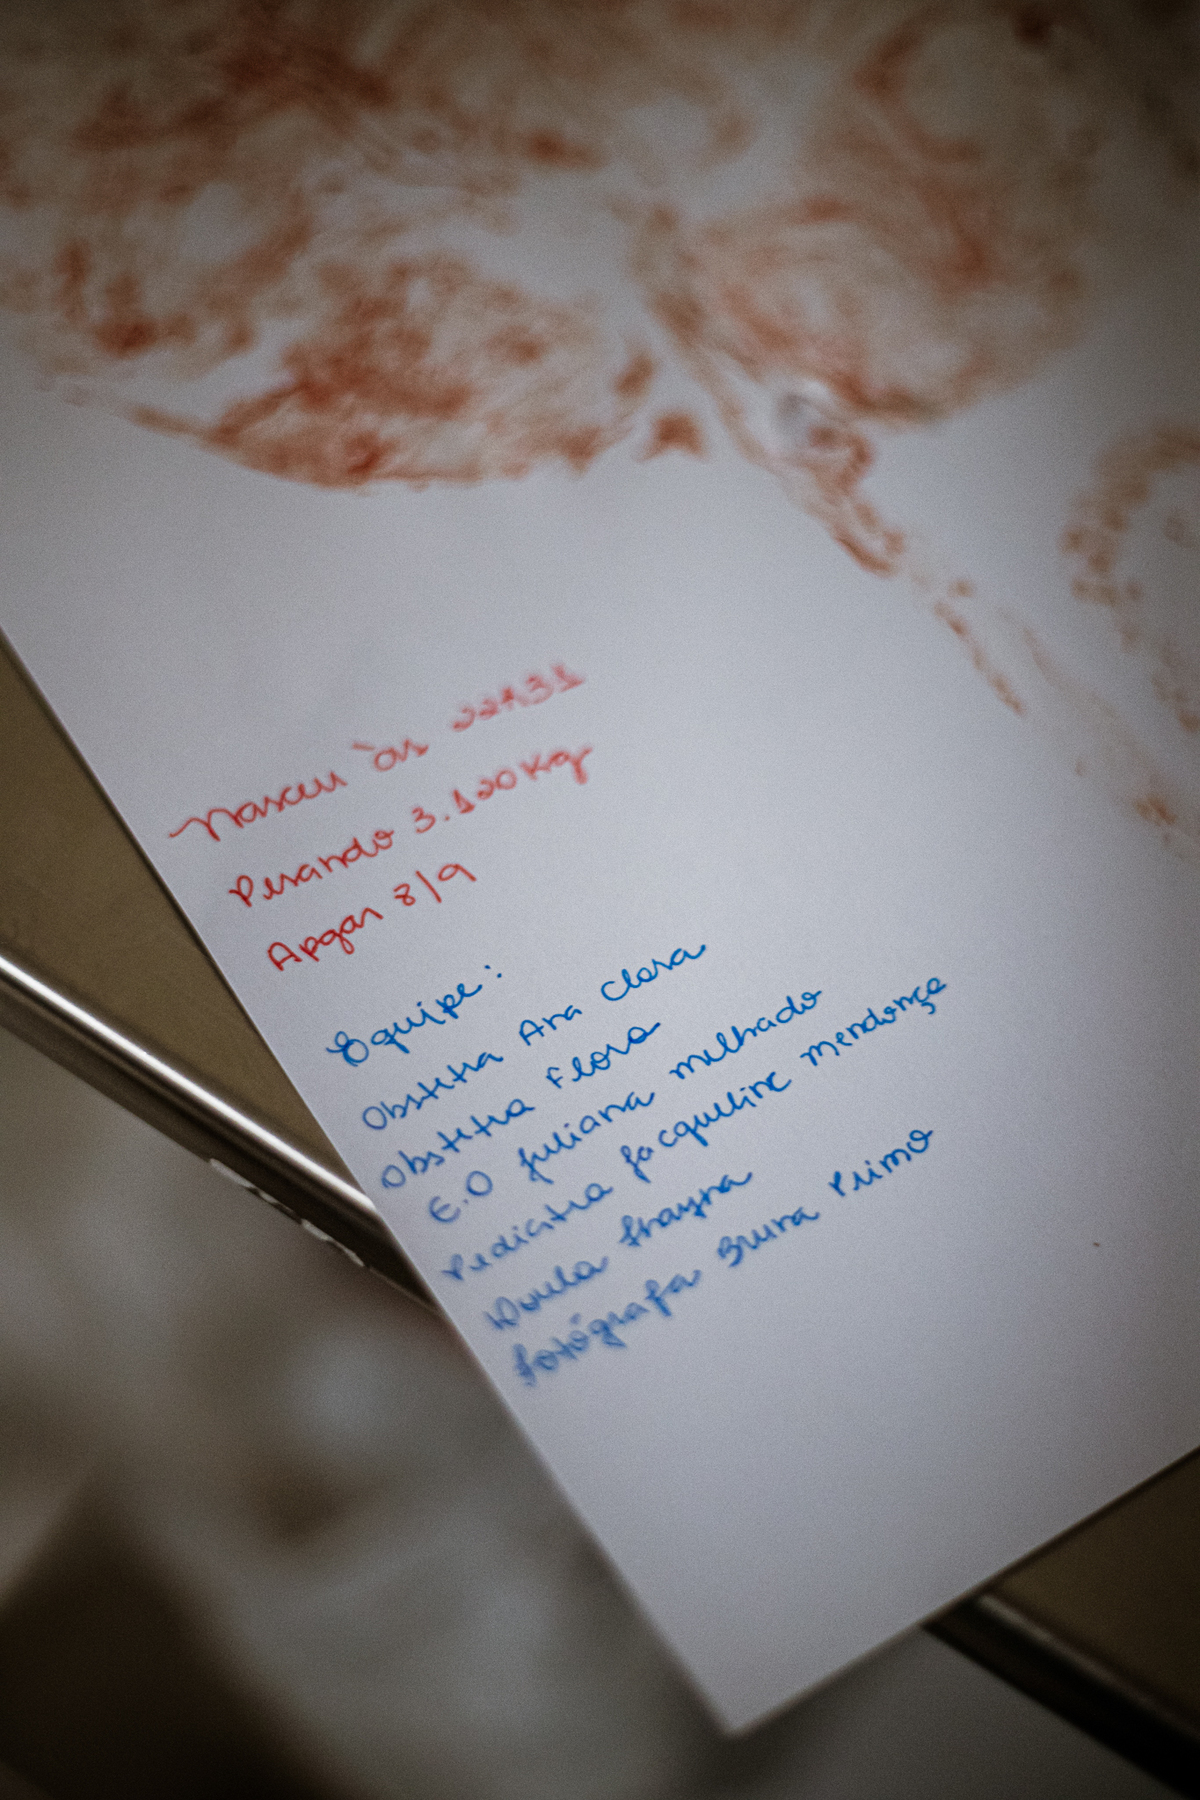 Nasceu às 22h31
Pesando 3.120 Kg
Apgar 8/9
Equipe:
Obstetra Ana Clara
Obstetra Flora
E.O Juliana Melhado
Pediatra Jacqueline Mendonça
Doula Thayna
Fotógrafa Bruna Primo